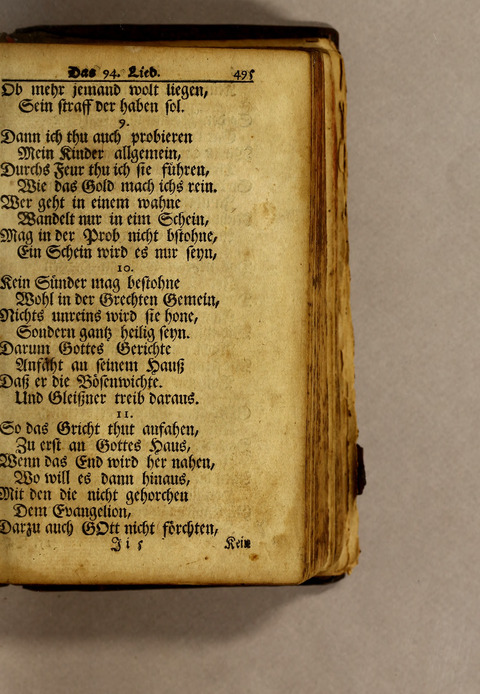 Das 94. Lied. 495
Ob mehr jemand wolt liegen,
Sein straff der haben sol.
9.
Dann ich thu auch probieren
Mein Kinder allgemein,
Durchs Feur thu ich sie führen,
Wie das Gold mach ichs rein.
Wer geht in einem wahne
Wandelt nur in eim Schein,
Mag in der Prob nicht bstohne,
Ein Schein wird es nur seyn,
10.
Kein Sünder mag bestohne
Wohl in der Grechten Gemein,
Nichts unreins wird sie hone,
Sondern gantz heilig seyn.
Darum Gottes Gerichte
Anfäht an seinem Hauß
Daß er die Bösenwichte.
Und Gleißner treib daraus.
11.
So das Gricht thut anfahen,
Zu erst an Gottes Haus,
Wenn das End wird her nahen,
Wo will es dann hinaus,
Mit den die nicht gehorchen
Dem Evangelion,
Darzu auch GOtt nicht förchten,
Ji 5 Kein